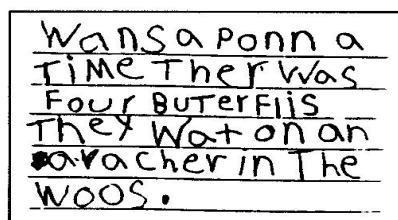 Wans a ponn a
TiMe Ther Was
Four BuTerFliis
They Wat on an
avacher in The
Woos.